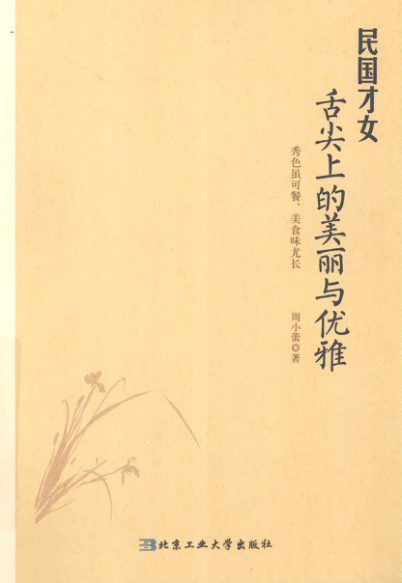 民国才女
舌尖上的美丽与优雅
秀色虽可餐，美食味尤长
周小蕾◎著
北京工业大学出版社